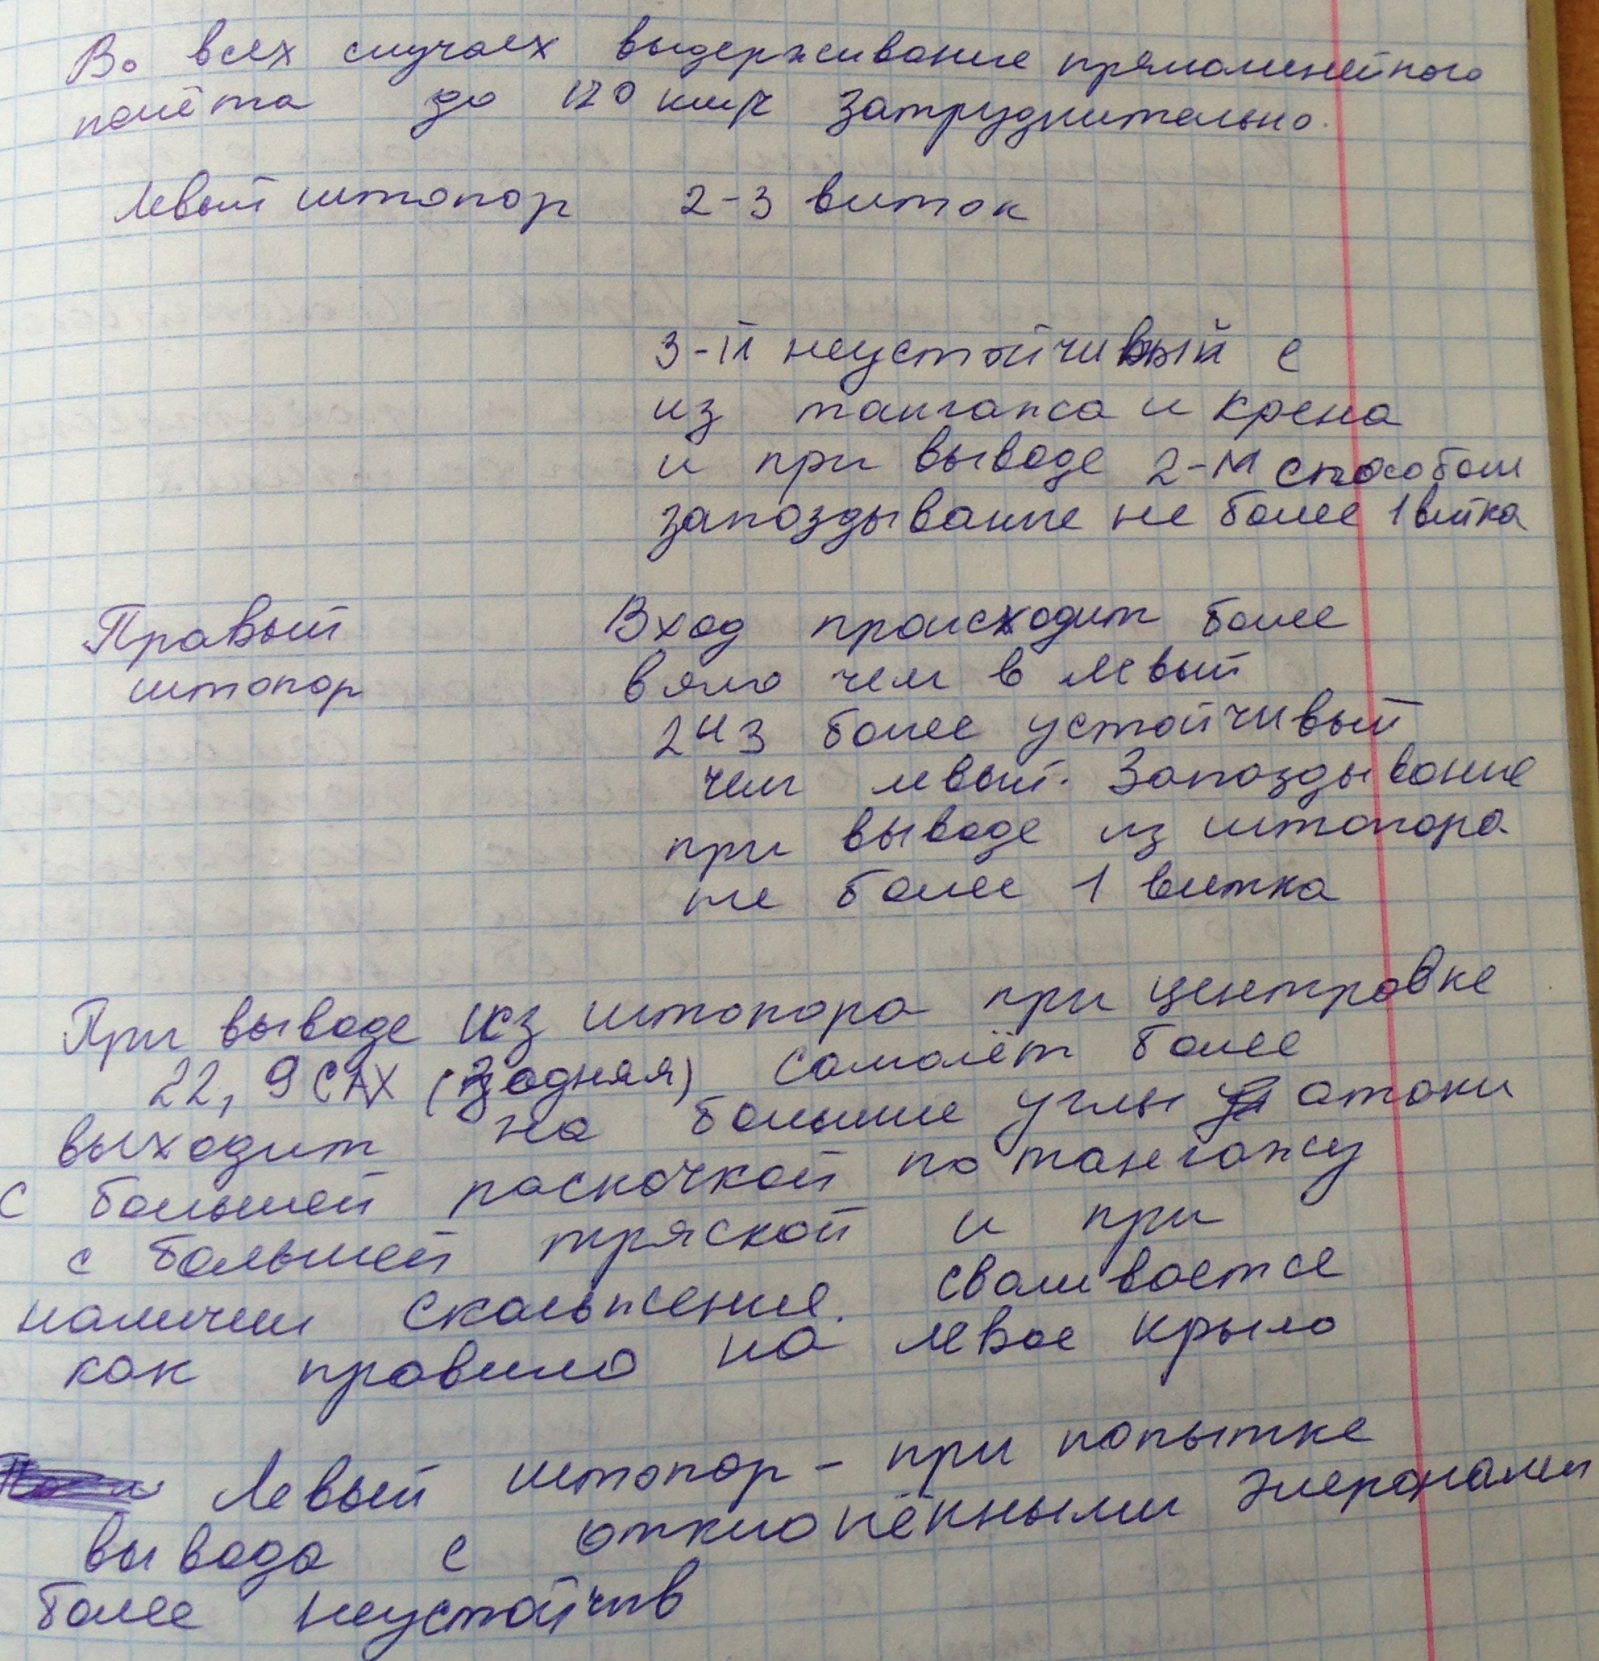 Во всех случаех выдерживание прямолинейного
полёта до 120 км/ч затруднительно.
Левый штопор 2-3 виток
3-й неустойчивый с
из тангажа и крена
и при выводе 2-м способом
запоздывание не более 1 витка
Правый Вход происходит более
штопор вяло чем в левый
2 и 3 более устойчивый
чем левый. Запоздывание
при выводе из штопора
не более 1 витка
При выводе из штопора при центровке
22,9 САХ (задняя) самолёт более
выходит на большие углы атаки
с большей раскачкой по тангажу
с большей тряской и при
наличии скольжение. сваливается
как правило на левое крыло
Левый штопор - при попытке
вывода с отклонёнными элеронами
более неустойчив